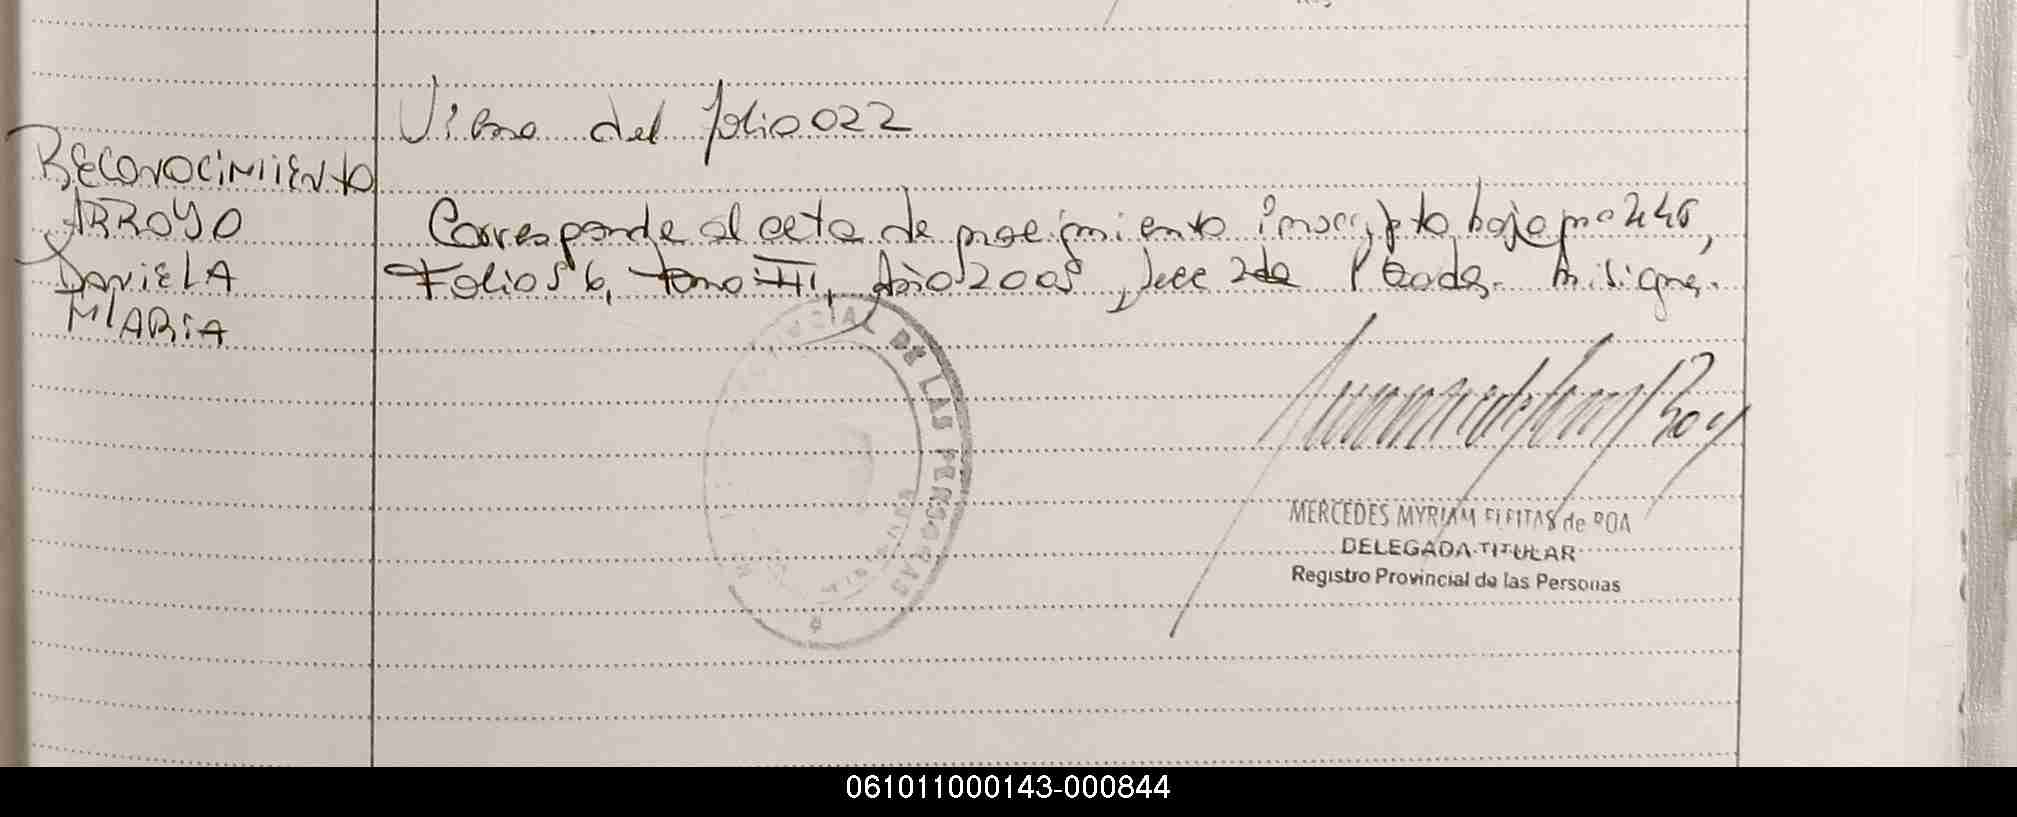 Viene del folio 022
Reconocimiento
ARROYO
Daniela
Maria
Corresponde al acta de nacimiento inscripto bajo nº 245,
Folio 56, tomo III, Año 2005, Secc 2da Posadas. Misiones.
PROVINCIAL DE LAS PERSONAS
MERCEDES MYRIAM FLEITAS de ROA
DELEGADA TITULAR
Registro Provincial de las Personas
061011000143-000844